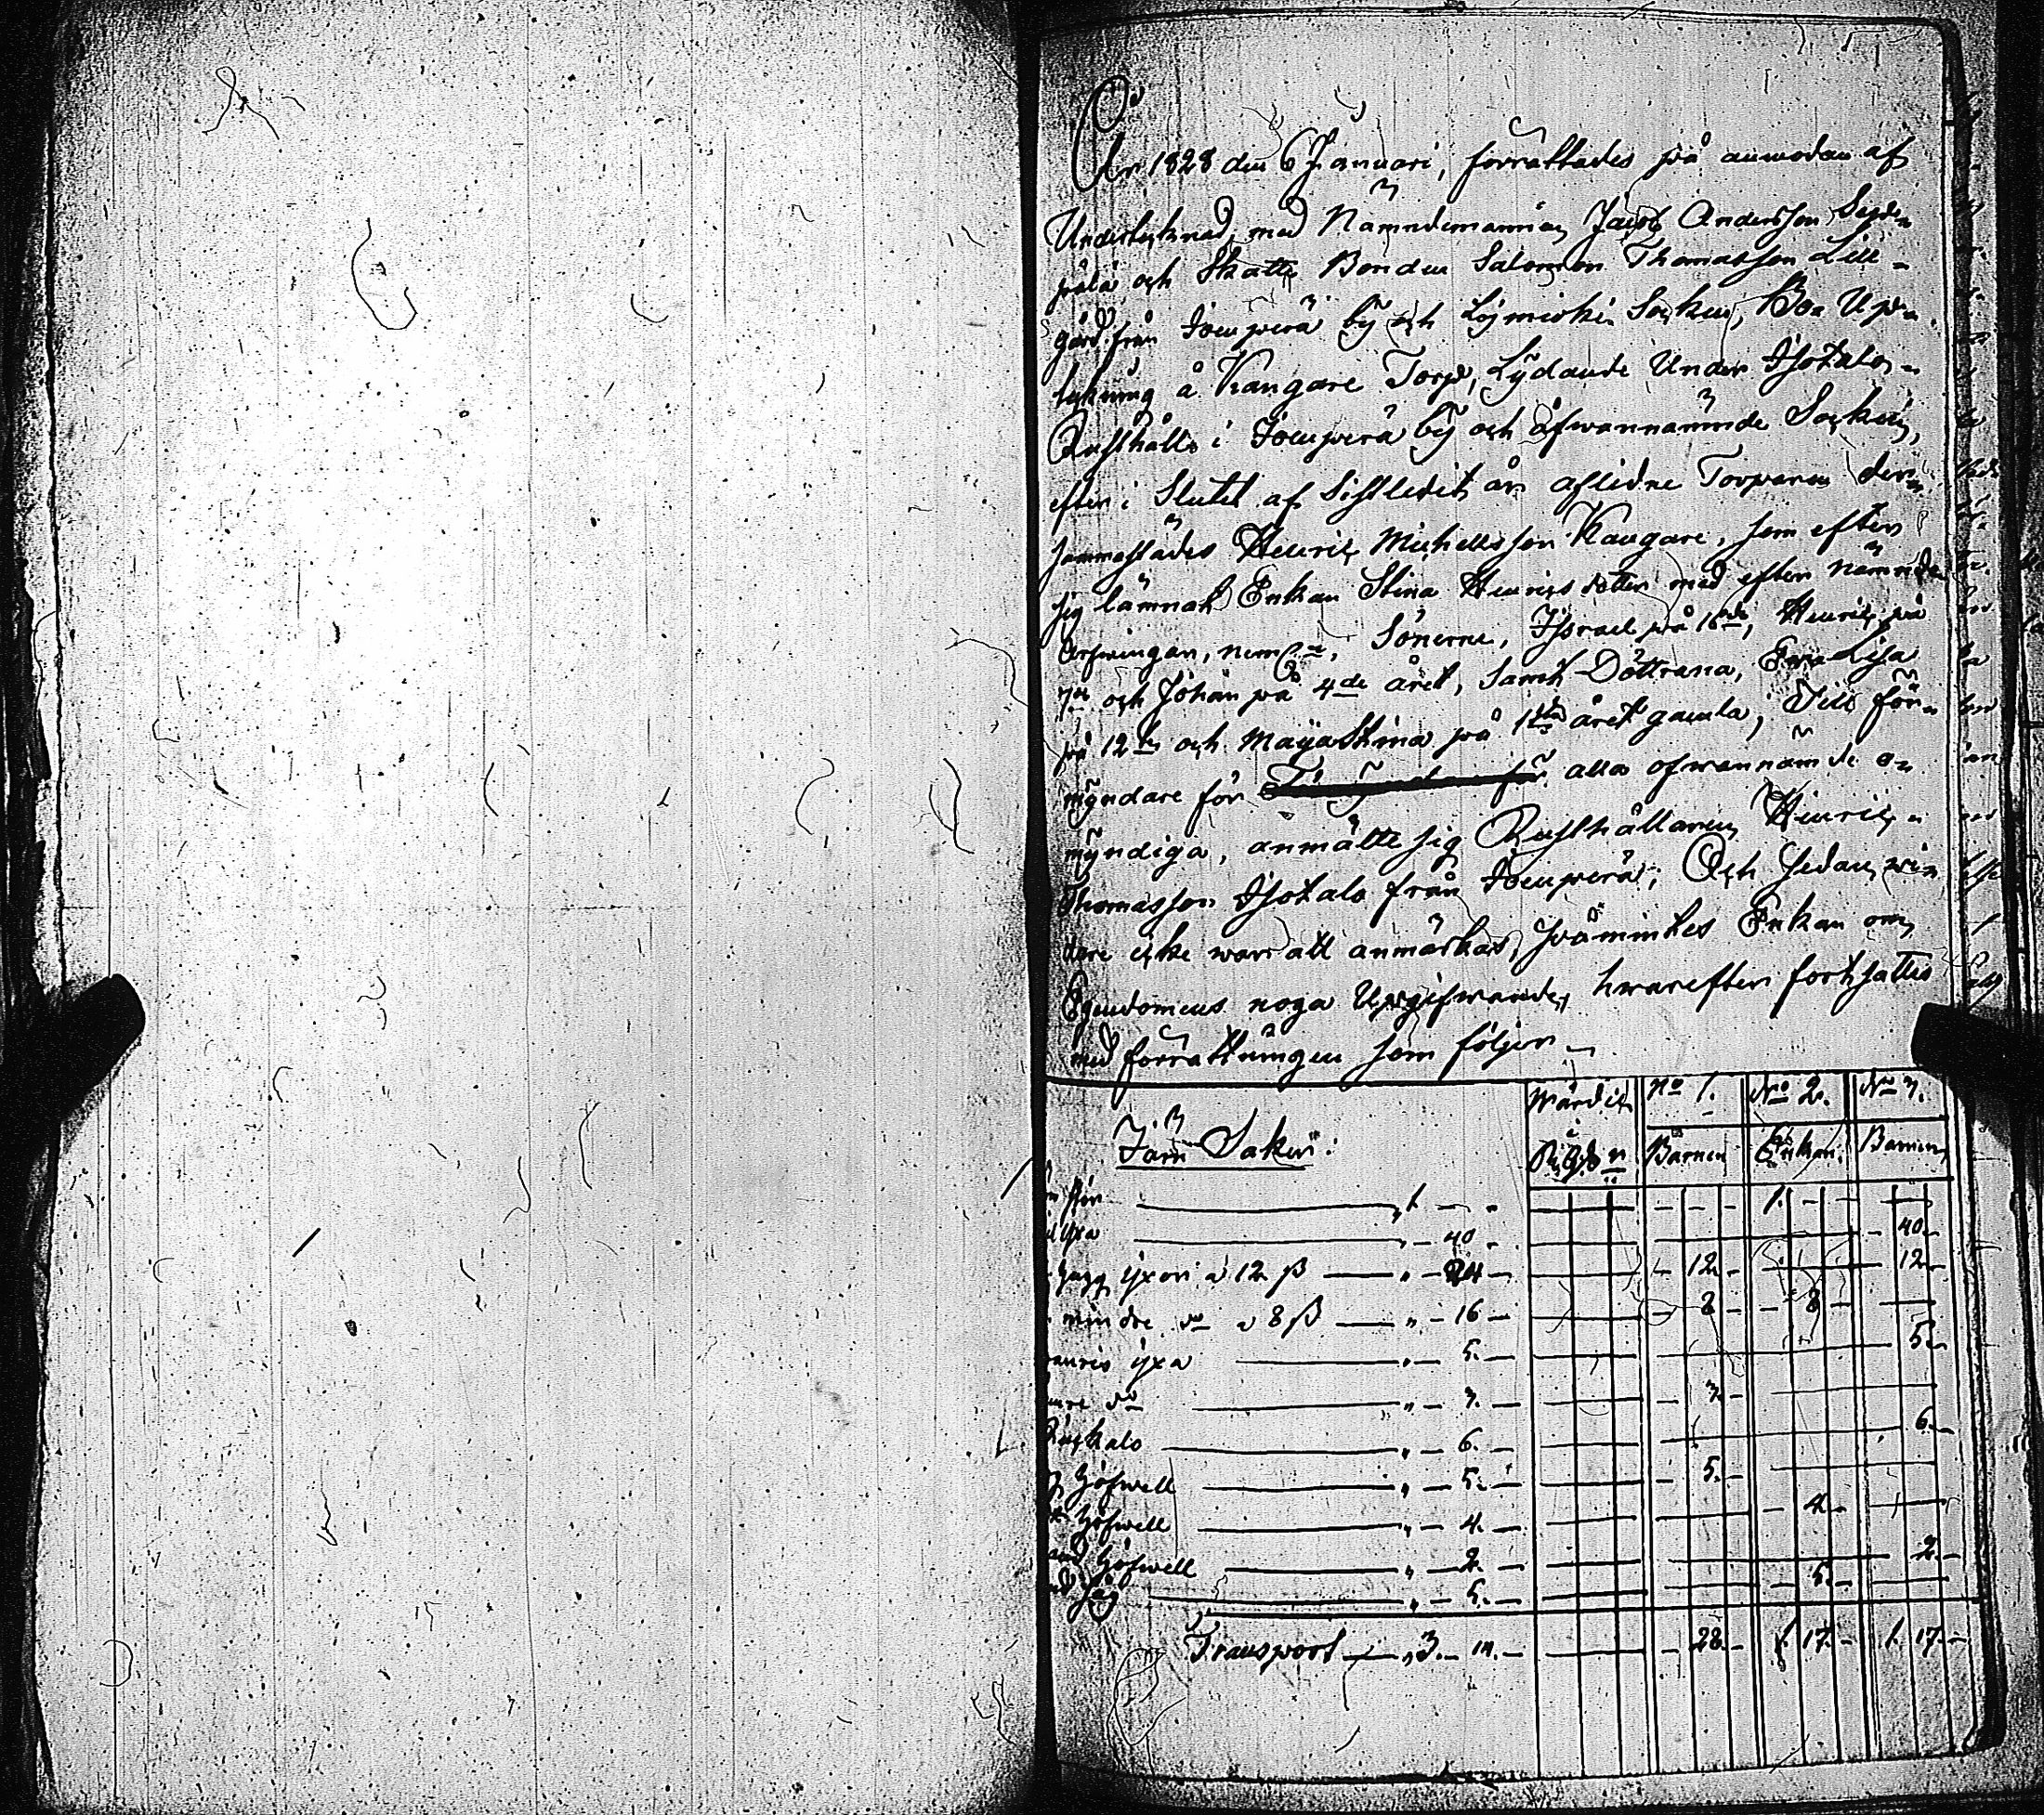 År 1828 den 6 Januari, förrättades på anmodan af
Undertecknad, med Nämndemannen Jacob Andersson Seppä-
och Skatte Bonden Salomon Thomasson Lill-
gård från Jouperä by och Lojmioki Socken, Bou Upp-
tekning å Kangare Torp, Lydande Under Isotalo
Rusthåll i Jouperä by och åfwannämnde Socken,
efter i Slutet af Sistledit år aflidne Torparen der-
sammastädes Henric Michellsson Kangare, som efter
sig lämnat Enkan Stina Henricsdotter med efter nämnde
Arfwingar, neml., Sönerne, Israel på 16de, Henric på
7de och Johan på 4de året, samt Döttrarna, Ewa Lisa
på 12te och Maja Stina på 1sta året gamla; Till för-
myndare för alla ofwannämde o-
myndiga, anmälte sig Rusthållaren Henric
Thomasson Isotalo från Jouperä; Och sedan wi-
dare icke war att anmärkas, påmintes Enkan om
Egendomens noga Upgifwande, hwarefter fortsattes
med förrättningen som följer
Wärdit N° 1. N° 2. N° 3.
Järn Saker:
Barnen Enkan Barnen
Stör 1. - - 1. - -
yxa - 40 - - 40 -
hugg yxor a 12 ß - 24 - - 12 - - 12 -
mindre do a 8 ß - 16 - - 8 - - 8 -
yxa - 5. - 5. -
do - 3. - - 3. -
- 6. - 6. -
höfwell - 5. - - 5. -
höfwell - 4. - - 4. -
höfwell - 2. - 2. -
Såg - 5. - - 5. -
Transport 3. 14. - - 28. - 1. 17. - 1. 17. -